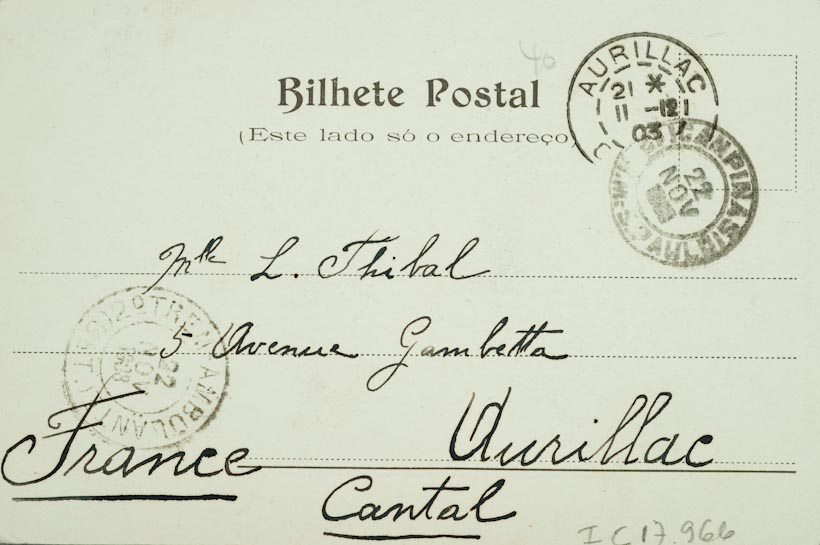 40
Bilhete Postal
(Este lado só o endereço)
AURILLAC
21 *
11 -12
03
CAMPINAS
22
NOV
S. PAULO
Mlle L. Thibal
5 Avenue Gambetta
2º TREM AMBULANTE
22
NOV
1903
France
Aurillac
Cantal
IC17.966